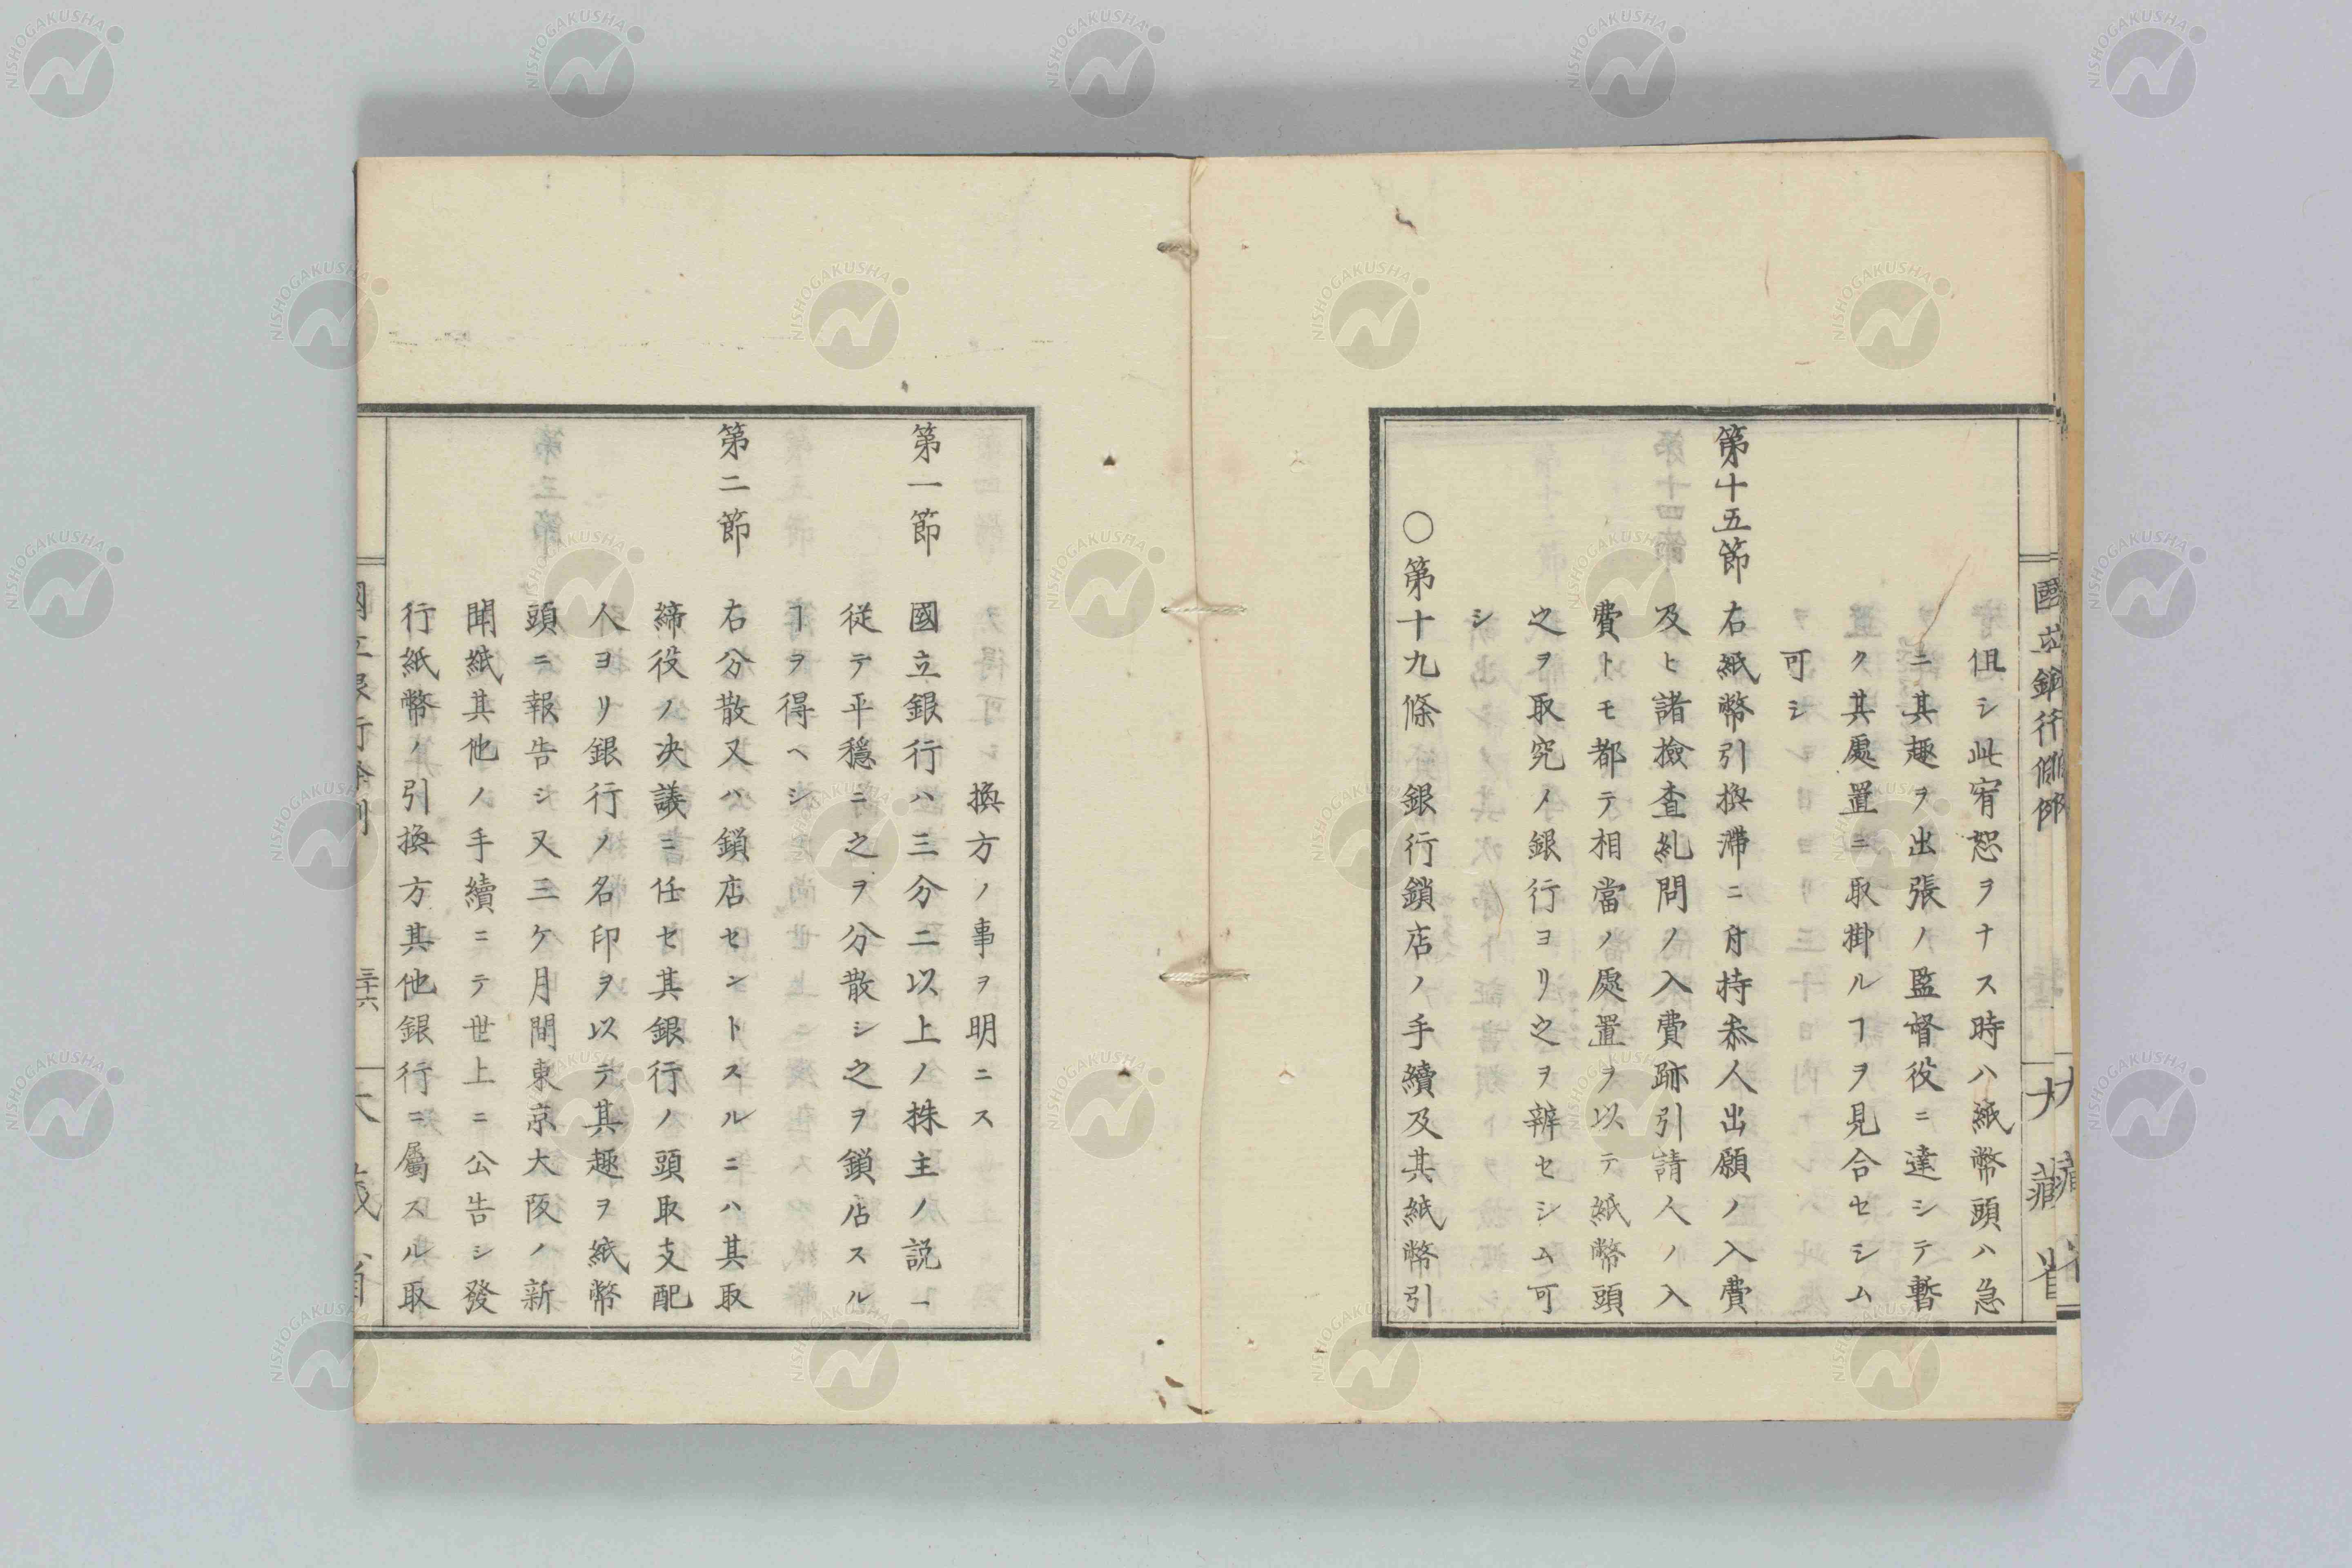 但シ此宥恕ヲナス時ハ紙幣頭ハ急
ニ其趣ヲ出張ノ監督役ニ達シテ暫
ク其處置ニ取掛ルヿヲ見合セシム
可シ
第十五節 右紙幣引換滞ニ付持叅人出願ノ入費
及ヒ諸撿査糺問ノ入費跡引請人ノ入
費トモ都テ相當ノ處置ヲ以テ紙幣頭
之ヲ取究メ銀行ヨリ之ヲ辨セシム可
シ
〇第十九條 銀行鎖店ノ手續及其紙幣引
換方ノ事ヲ明ニス
第一節 國立銀行ハ三分二以上ノ株主ノ説ニ
従テ平穏ニ之ヲ分散シ之ヲ鎖店スル
ヿヲ得ヘシ
第二節 右分散又ハ鎖店セントスルニハ其取
締役ノ决議ニ任セ其銀行ノ頭取支配
人ヨリ銀行ノ名印ヲ以テ其趣ヲ紙幣
頭ニ報告シ又三ケ月間東京大阪ノ新
聞紙其他ノ手續ニテ世上ニ公告シ發
行紙幣ノ引換方其他銀行ニ屬スル取
國立銀行條例
三十六
大藏省
NISHOGAKUSHA